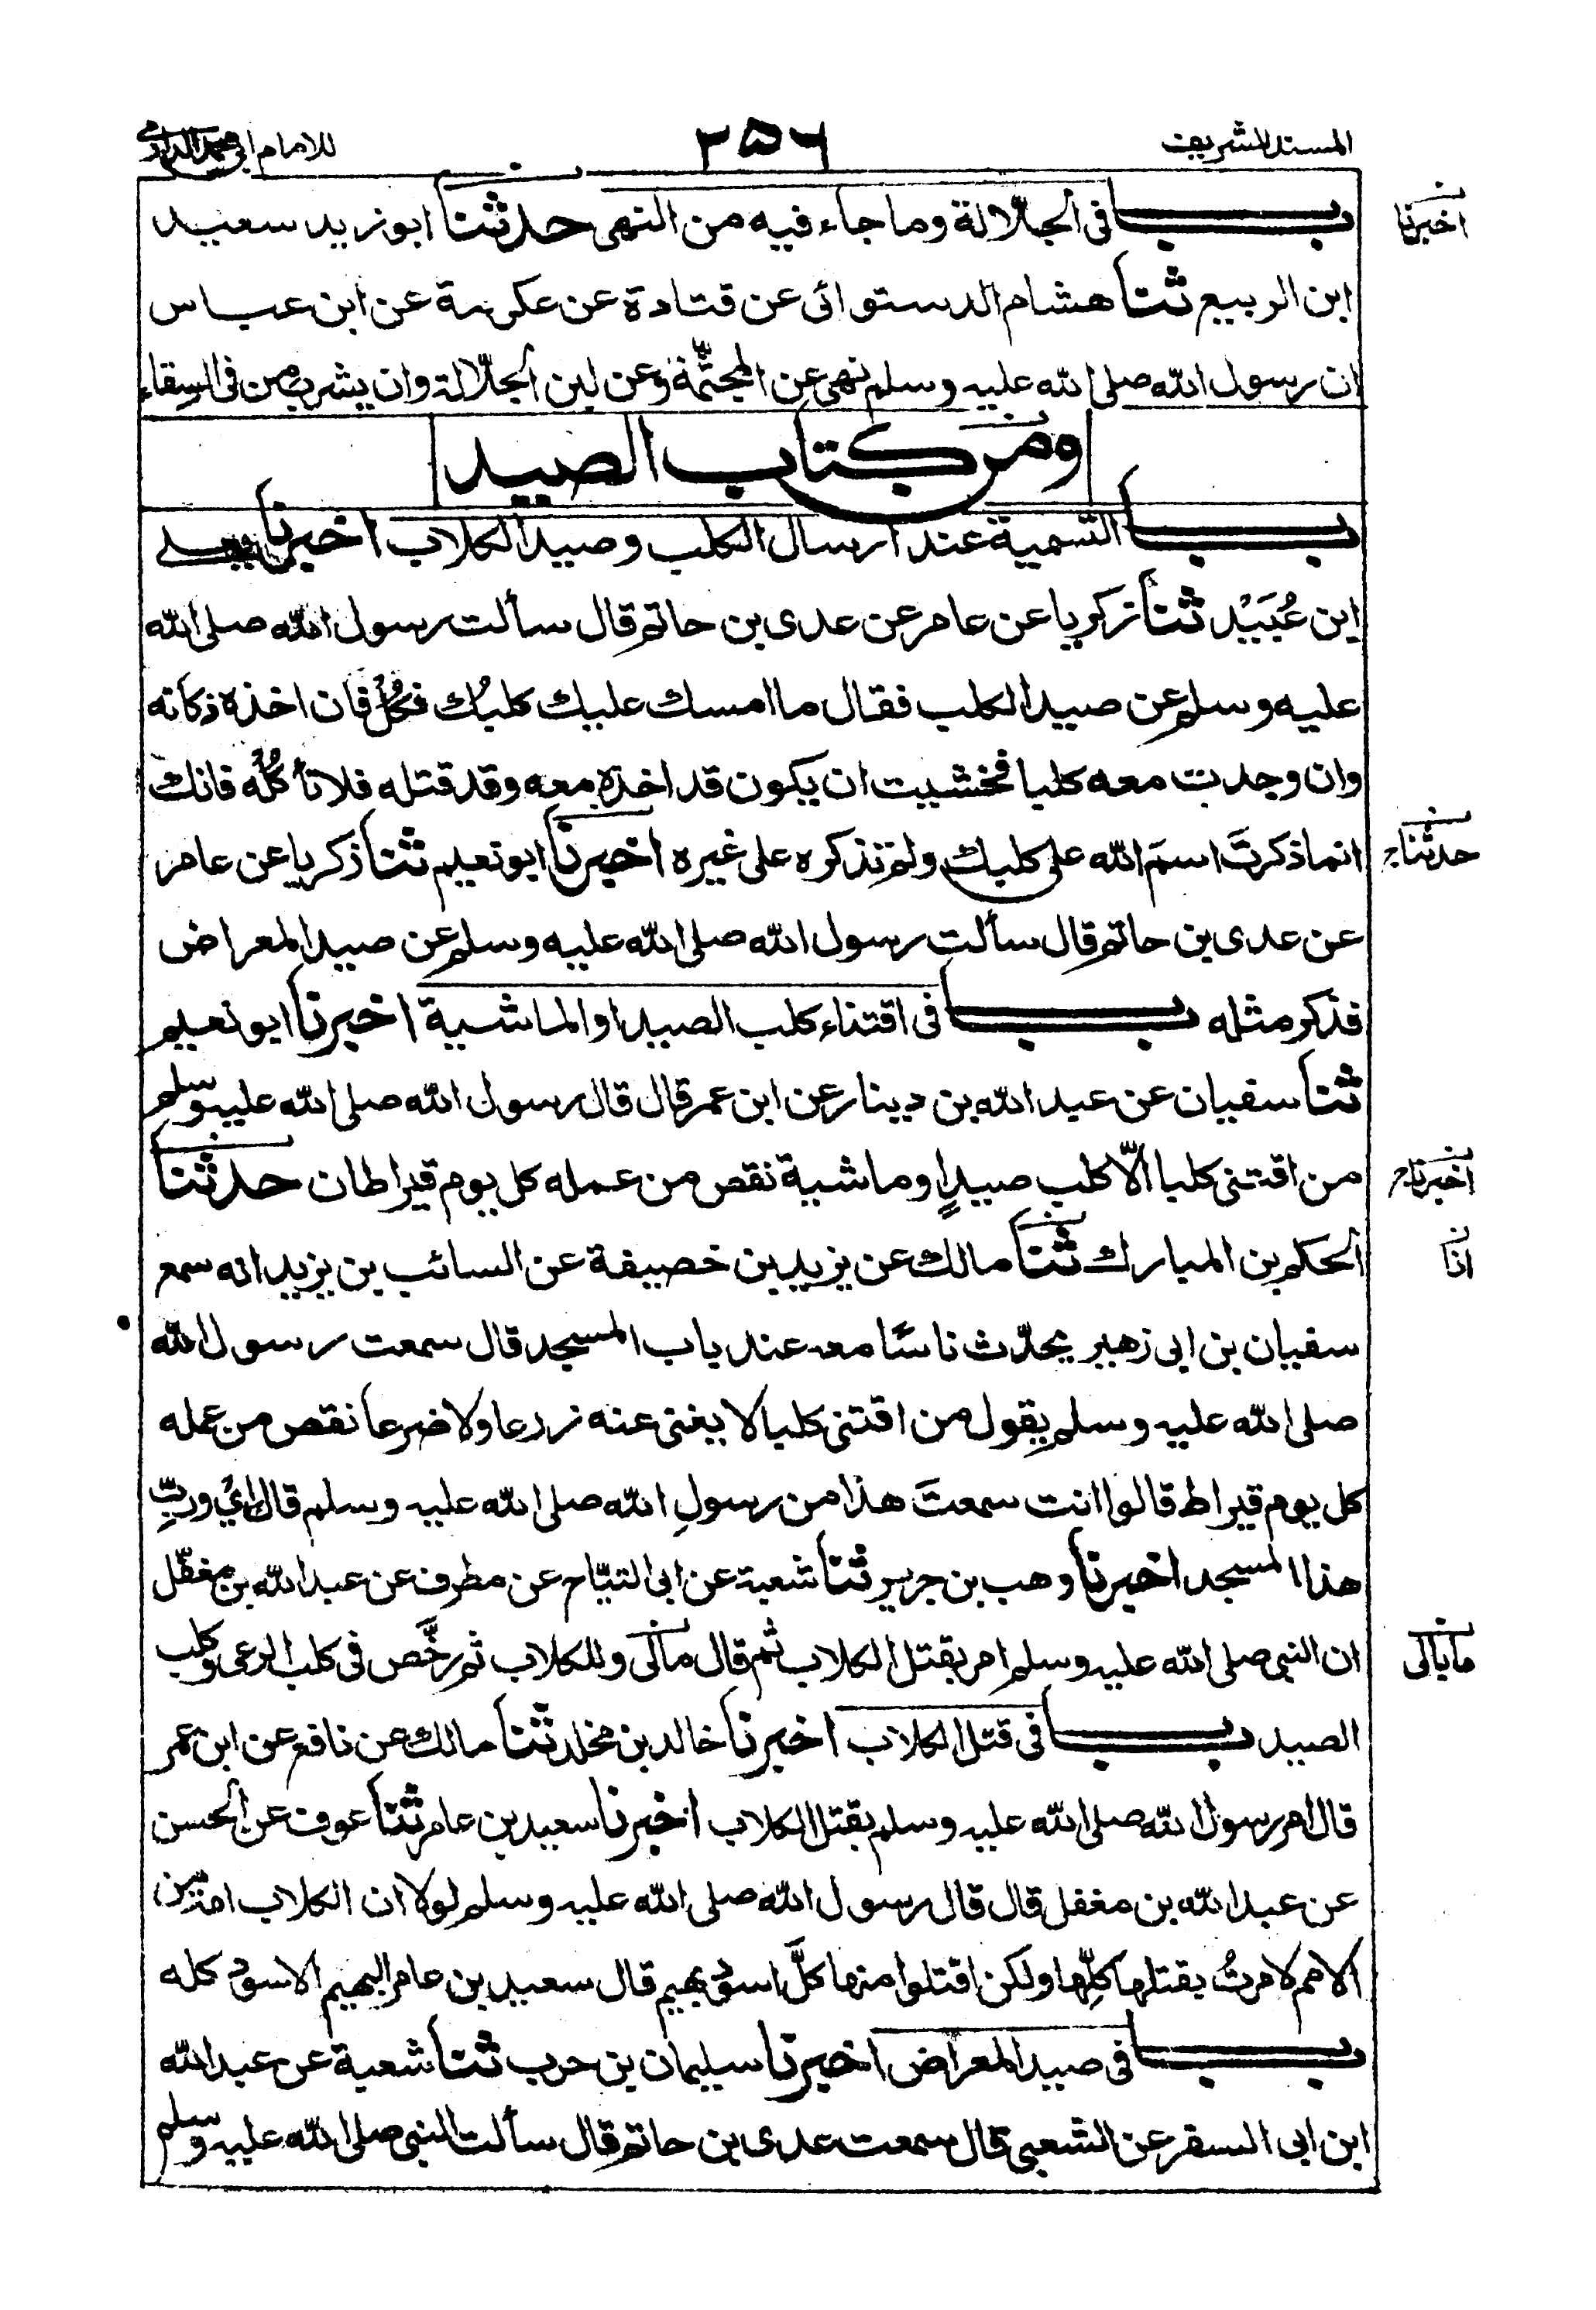 المسند الشريف ٢٥٦ للامام ابي محمد الدارمي
بـــاب فى الجلّالة وما جاء فيه من النهى حدثنا ابو زيد سعيد
اخبرنا
ابن الربيع ثنا هشام الدستوائى عن قتادة عن عكرمة عن ابن عباس
ان رسول الله صلى الله عليه وسلم نهى عن المجثّمة وعن لبن الجلّالة وان يشرب من فى السِقاء
ومن كتاب الصيد
بـــاب التسمية عند ارسال الكلب وصيد الكلاب اخبرنا يعلى
ابن عُبَيْد ثنا زكريا عن عامر عن عدى بن حاتم قال سألت رسول الله صلى الله
عليه وسلم عن صيد الكلب فقال ما امسك عليك كلبُك فكُلْ فان اخذه ذكاته
وان وجدت معه كلبا فخشيت ان يكون قد اخذه معه وقد قتله فلا تأكُلْه فانك
انما ذكرتَ اسمَ الله على كلبك ولم تذكره على غيره اخبرنا ابو نعيم ثنا زكريا عن عامر
حدثنا
عن عدى بن حاتم قال سألت رسول الله صلى الله عليه وسلم عن صيد المعراض
فذكر مثله بـــاب فى اقتناء كلب الصيد او الماشية اخبرنا ابو نعيم
ثنا سفيان عن عبد الله بن دينار عن ابن عمر قال قال رسول الله صلى الله عليه وسلم
من اقتنى كلبا الّا كلب صيدٍ او ماشية نقص من عمله كل يوم قيراطان حدثنا
اخبرنا
الحكم بن المبارك ثنا مالك عن يزيد بن خصيفة عن السائب بن يزيد انه سمع
انا
سفيان بن ابى زهير يحدّث ناسًا معه عند باب المسجد قال سمعت رسول الله
صلى الله عليه وسلم يقول من اقتنى كلبا لا يغنى عنه زرعا ولا ضرعا نقص من عمله
كل يوم قيراط قالوا انت سمعتَ هذا من رسولِ الله صلى الله عليه وسلم قال اىْ وربِّ
هذا المسجد اخبرنا وهب بن جرير ثنا شعبة عن ابى التيّاح عن مطرف عن عبد الله بن مغفّل
ان النبى صلى الله عليه وسلم امر بقتل الكلاب ثم قال مالى وللكلاب ثم رخّص فى كلب الرعى وكلب
ما بالى
الصيد بـــاب فى قتل الكلاب اخبرنا خالد بن مخلد ثنا مالك عن نافع عن ابن عمر
قال امر رسول الله صلى الله عليه وسلم بقتل الكلاب اخبرنا سعيد بن عامر ثنا عوف عن الحسن
عن عبد الله بن مغفل قال قال رسول الله صلى الله عليه وسلم لولا ان الكلاب امة من
الامم لامرتُ بقتلها كلِّها ولكن اقتلوا منها كلَّ اسود بهيم قال سعيد بن عامر البهيم الاسود كله
بـــاب فى صيد المعراض اخبرنا سليمان بن حرب ثنا شعبة عن عبد الله
ابن ابى السفر عن الشعبى قال سمعت عدى بن حاتم قال سألت النبى صلى الله عليه وسلم